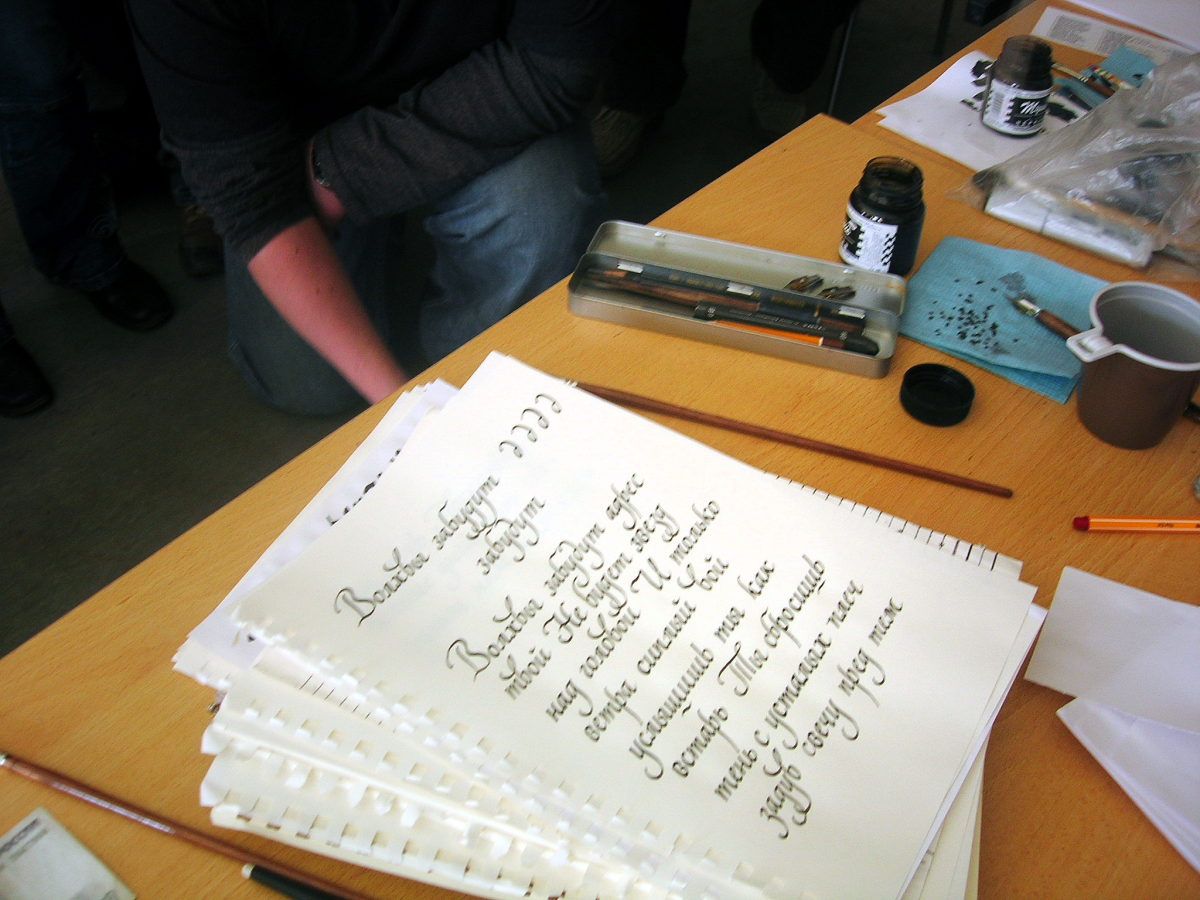 Волхвы забудут
забудут
Волхвы забудут адрес
твой Не будет звёзд
над головой И только
ветра сиплый вой
услышишь ты как
встарь Ты сбросишь
тень с усталых плеч
задув свечу пред тем